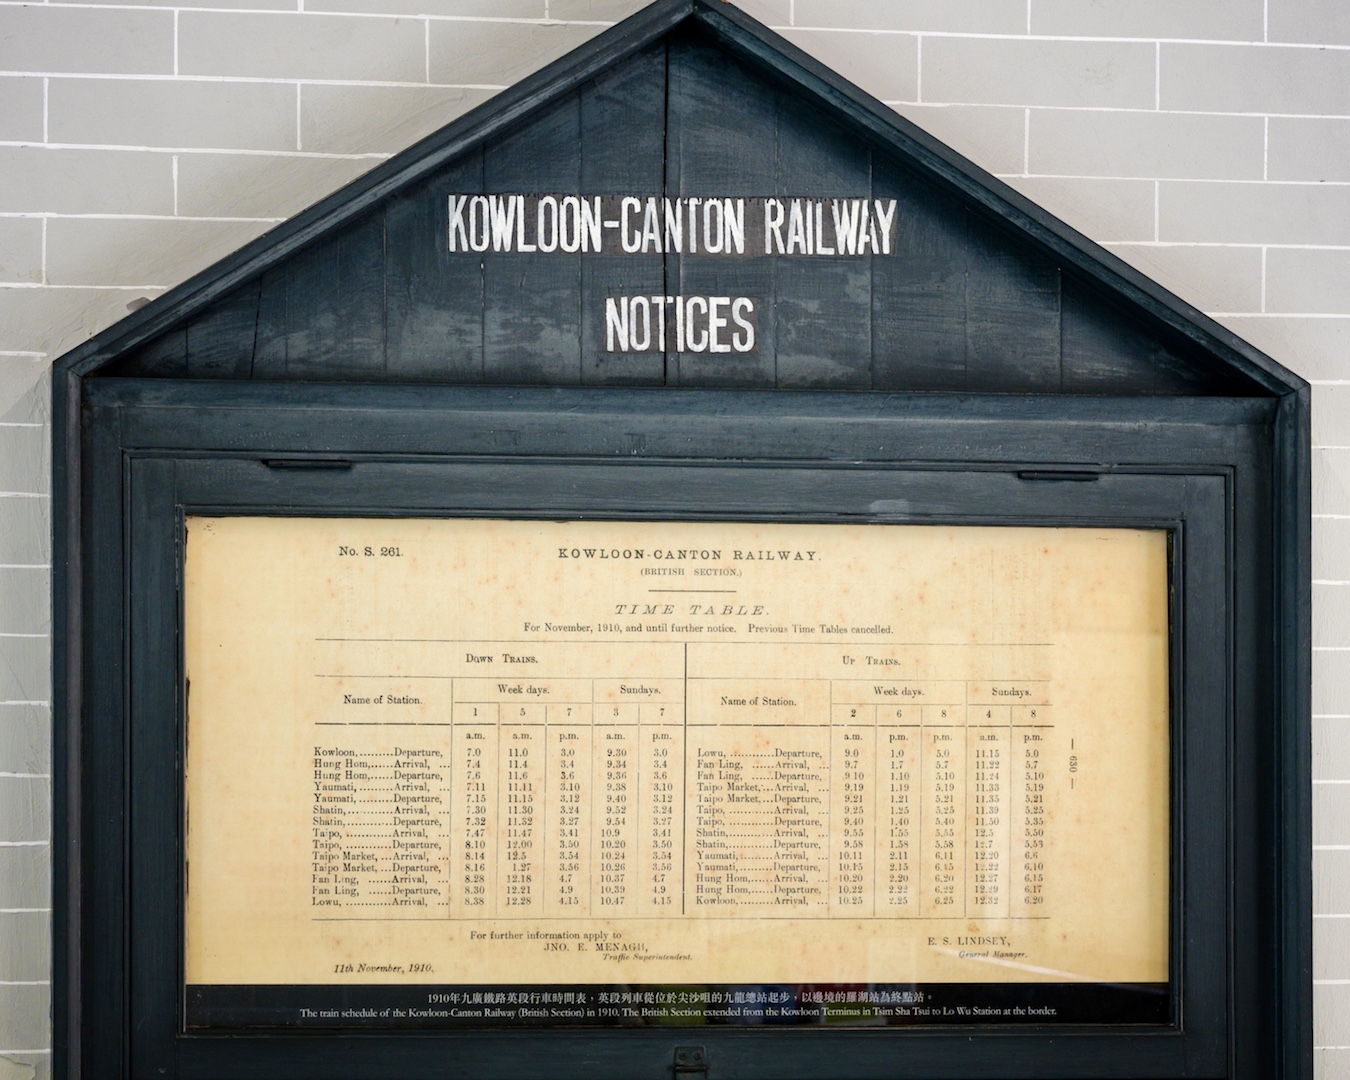 KOWLOON-CANTON RAILWAY
NOTICES
No. S. 261.
KOWLOON-CANTON RAILWAY.
(BRITISH SECTION.)
TIME TABLE.
For November, 1910, and until further notice. Previous Time Tables cancelled.
DOWN TRAINS. UP TRAINS.
Name of Station. Week days. Sundays. Name of Station. Week days. Sundays.
1 5 7 3 7 2 6 8 4 8
a.m. a.m. p.m. a.m. p.m. a.m. p.m. p.m. a.m. p.m.
Kowloon,..........Departure, 7.0 11.0 3.0 9.30 3.0 Lowu, ............Departure, 9.0 1.0 5.0 11.15 5.0
Hung Hom,......Arrival, ... 7.4 11.4 3.4 9.34 3.4 Fan Ling, ......Arrival, ... 9.7 1.7 5.7 11.22 5.7
Hung Hom,......Departure, 7.6 11.6 3.6 9.36 3.6 Fan Ling, ......Departure, 9.10 1.10 5.10 11.24 5.10
Yaumati, .........Arrival, ... 7.11 11.11 3.10 9.38 3.10 Taipo Market,...Arrival, ... 9.19 1.19 5.19 11.33 5.19
Yaumati, .........Departure, 7.15 11.15 3.12 9.40 3.12 Taipo Market,...Departure, 9.21 1.21 5.21 11.35 5.21
Shatin,............Arrival, ... 7.30 11.30 3.24 9.52 3.24 Taipo, ............Arrival, ... 9.25 1.25 5.25 11.39 5.25
Shatin,............Departure, 7.32 11.32 3.27 9.54 3.27 Taipo, ............Departure, 9.40 1.40 5.40 11.50 5.35
Taipo, ............Arrival, ... 7.47 11.47 3.41 10.9 3.41 Shatin,............Arrival, ... 9.55 1.55 5.55 12.5 5.50
Taipo, ............Departure, 8.10 12.00 3.50 10.20 3.50 Shatin,............Departure, 9.58 1.58 5.58 12.7 5.53
Taipo Market, ...Arrival, ... 8.14 12.5 3.54 10.24 3.54 Yaumati,.........Arrival, ... 10.11 2.11 6.11 12.20 6.6
Taipo Market, ...Departure, 8.16 1.27 3.56 10.26 3.56 Yaumati,.........Departure, 10.15 2.15 6.15 12.22 6.10
Fan Ling, ......Arrival, ... 8.28 12.18 4.7 10.37 4.7 Hung Hom,......Arrival, ... 10.20 2.20 6.20 12.27 6.15
Fan Ling, ......Departure, 8.30 12.21 4.9 10.39 4.9 Hung Hom,......Departure, 10.22 2.22 6.22 12.29 6.17
Lowu, ............Arrival, ... 8.38 12.28 4.15 10.47 4.15 Kowloon,.........Arrival, ... 10.25 2.25 6.25 12.32 6.20
— 630 —
For further information apply to
JNO. E. MENAGH,
Traffic Superintendent.
E. S. LINDSEY,
General Manager.
11th November, 1910.
1910年九廣鐵路英段行車時間表，英段列車從位於尖沙咀的九龍總站起步，以邊境的羅湖站為終點站。
The train schedule of the Kowloon-Canton Railway (British Section) in 1910. The British Section extended from the Kowloon Terminus in Tsim Sha Tsui to Lo Wu Station at the border.